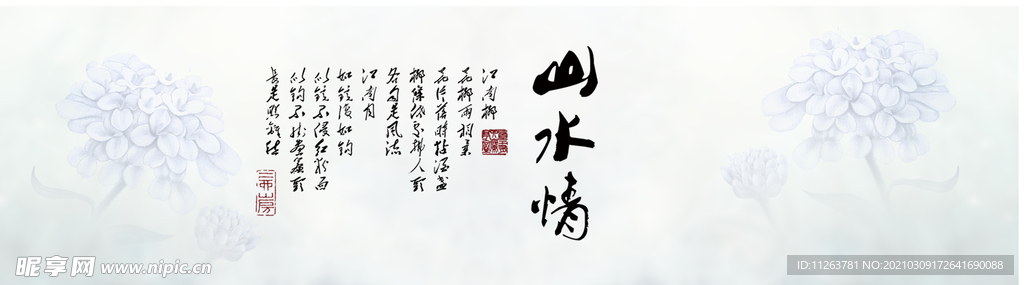 山水情
江南柳
花柳两相柔
花片落時粘酒盏
柳條低處拂人頭
各自是風流
江南月
如鏡復如鉤
似鏡不侵紅粉面
似鉤不掛畫簾頭
長是照離愁
昵享网 www.nipic.cn
ID:11263781 NO:20210309172641690088